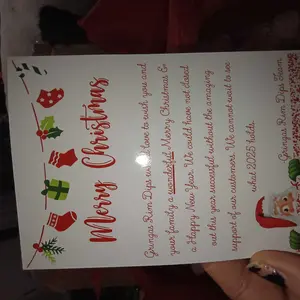 Merry Christmas
Gringas Rim Dips would love to wish you and
your family a wonderful Merry Christmas &
a Happy New Year. We could have not closed
out this year successful without the amazing
support of our customers. We cannot wait to see
what 2025 holds.
Gringas Rim Dips Team